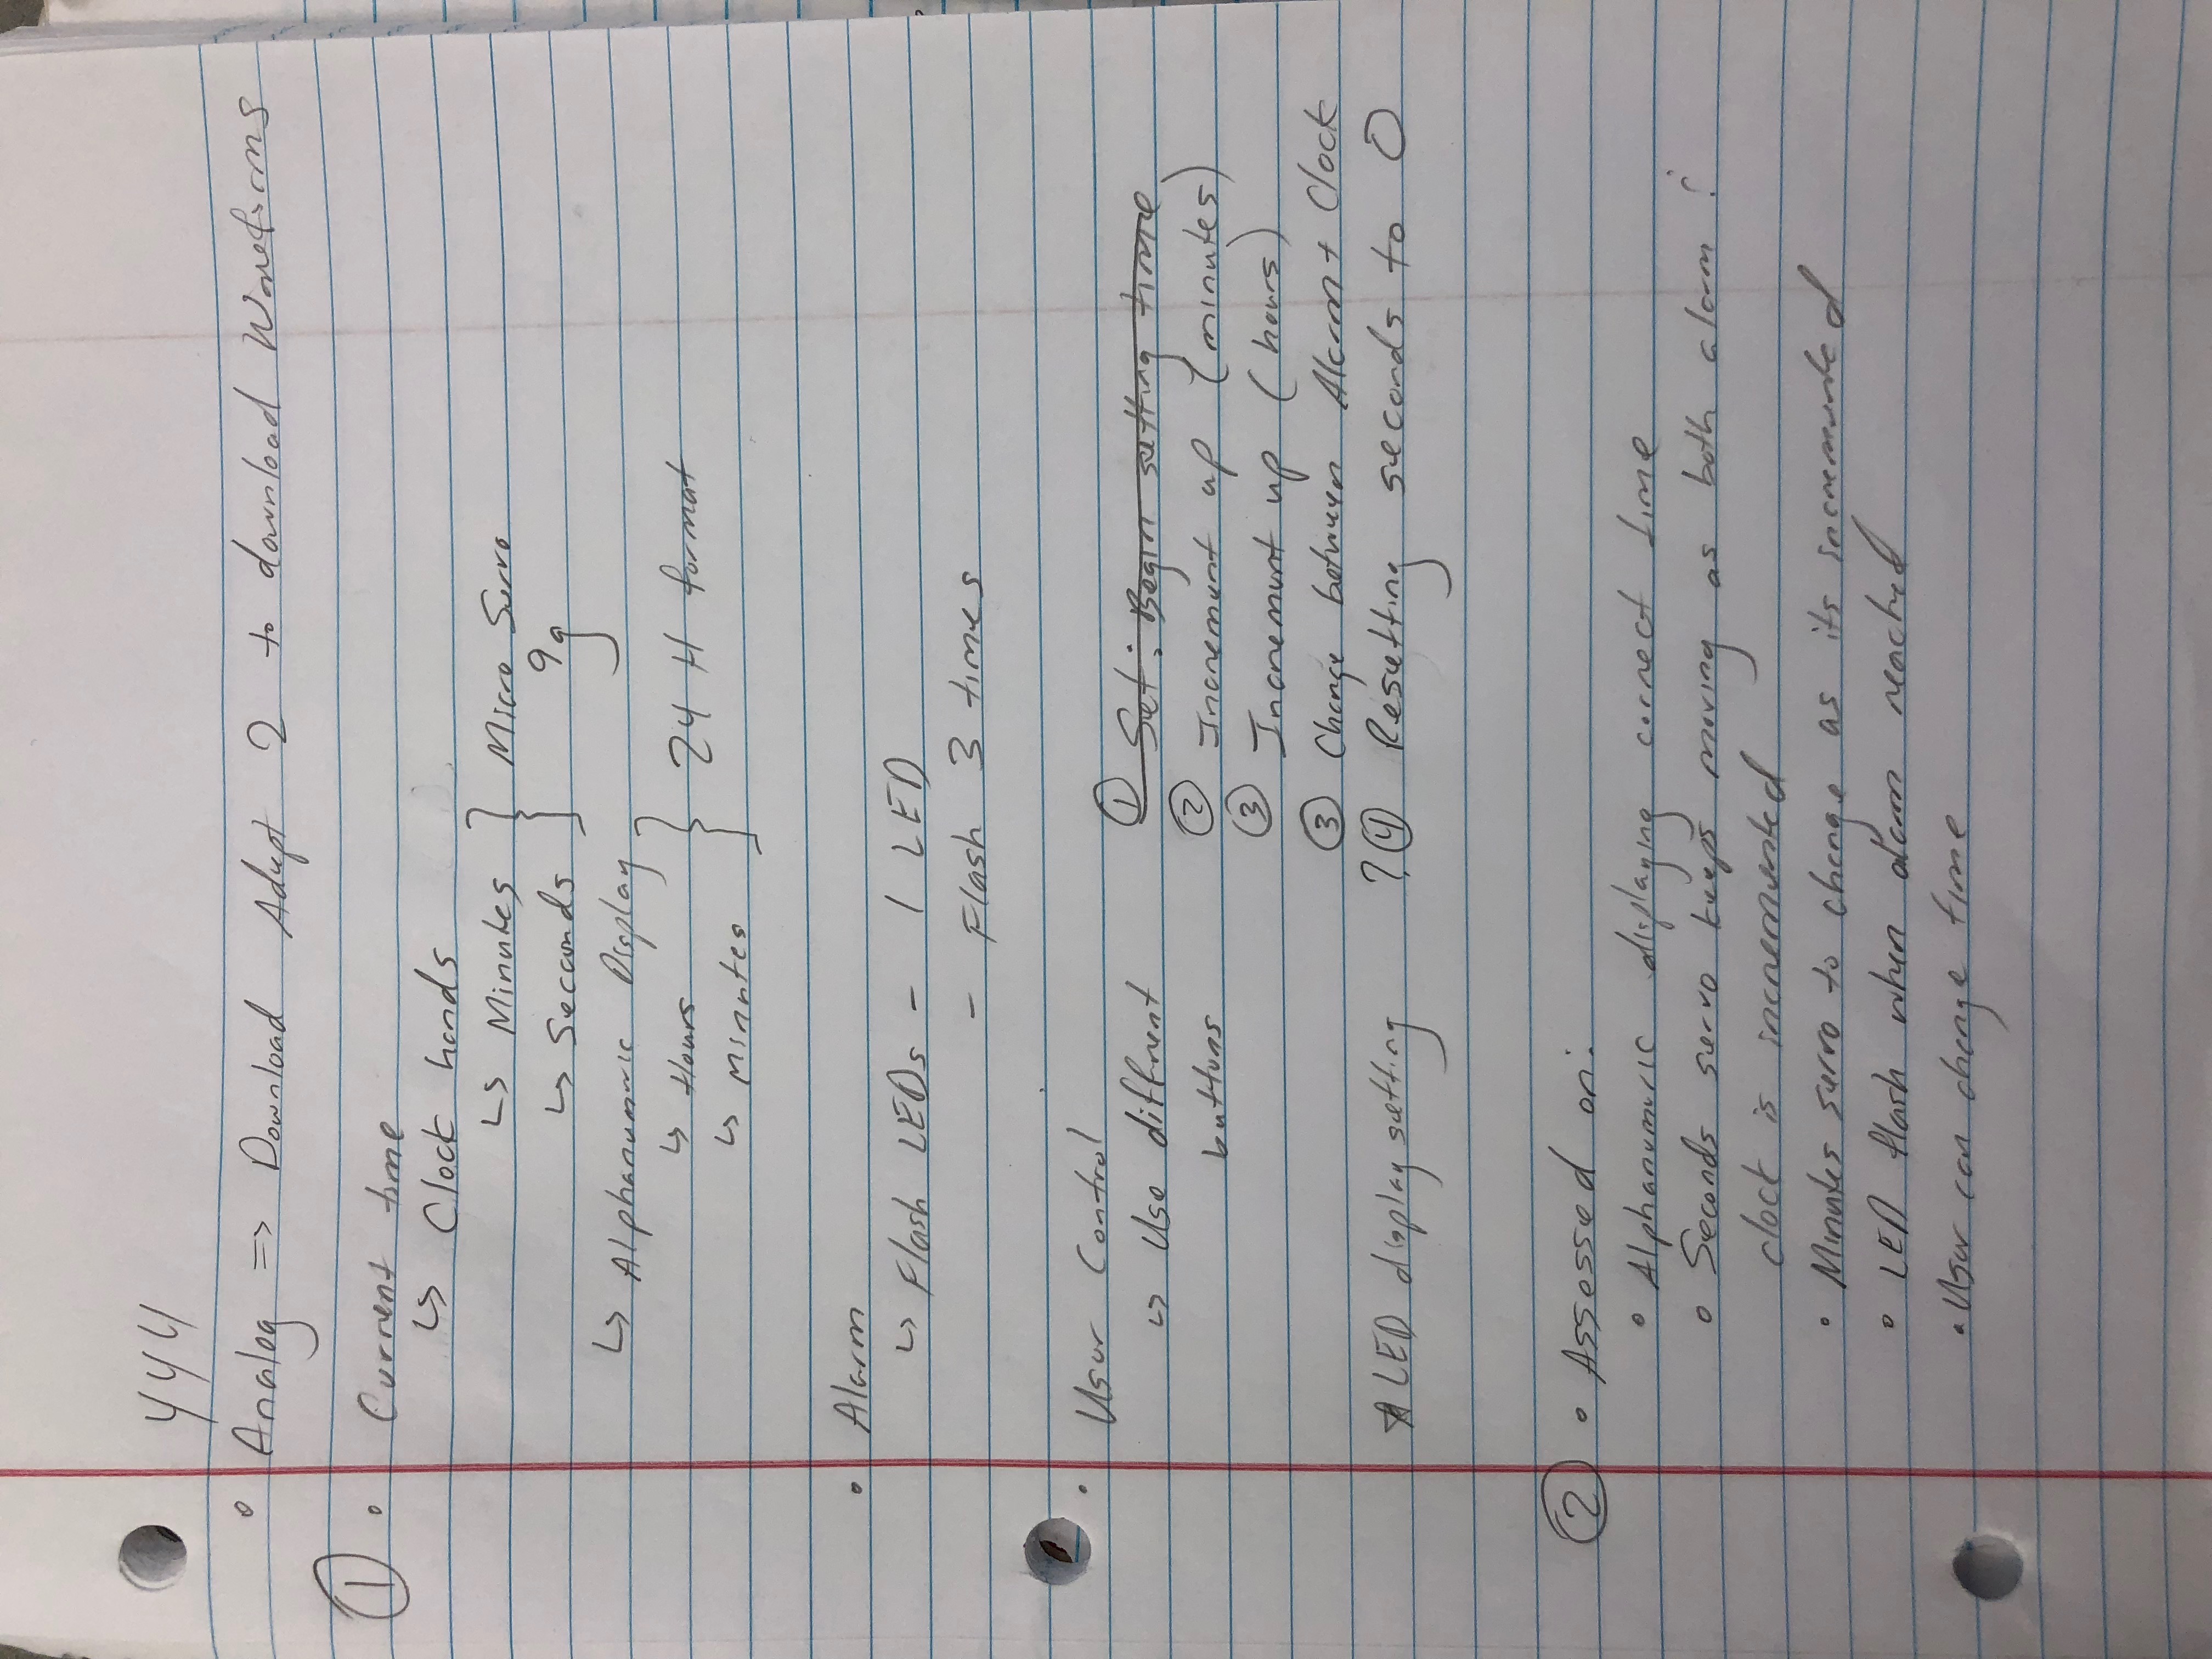 444
• Analog => Download Adept 2 to download Waveforms
① • Current time
↳ Clock hands
↳ Minutes } Micro Servo
↳ Seconds 9g
↳ Alphanumeric Display
↳ Hours } 24 H format
↳ Minutes
• Alarm
↳ Flash LEDs - 1 LED
- Flash 3 times
• User Control
① Set: Begin setting time
↳ Use different
② Increment up (minutes)
buttons
③ Increment up (hours)
③ Change between Alarm + Clock
* LED display setting ? ④ Resetting seconds to 0
② • Assessed on:
• Alphanumeric displaying correct time
• Seconds servo keeps moving as both alarm &
clock is incremented
• Minutes servo to change as its incremented
• LED flash when alarm reached
• User can change time